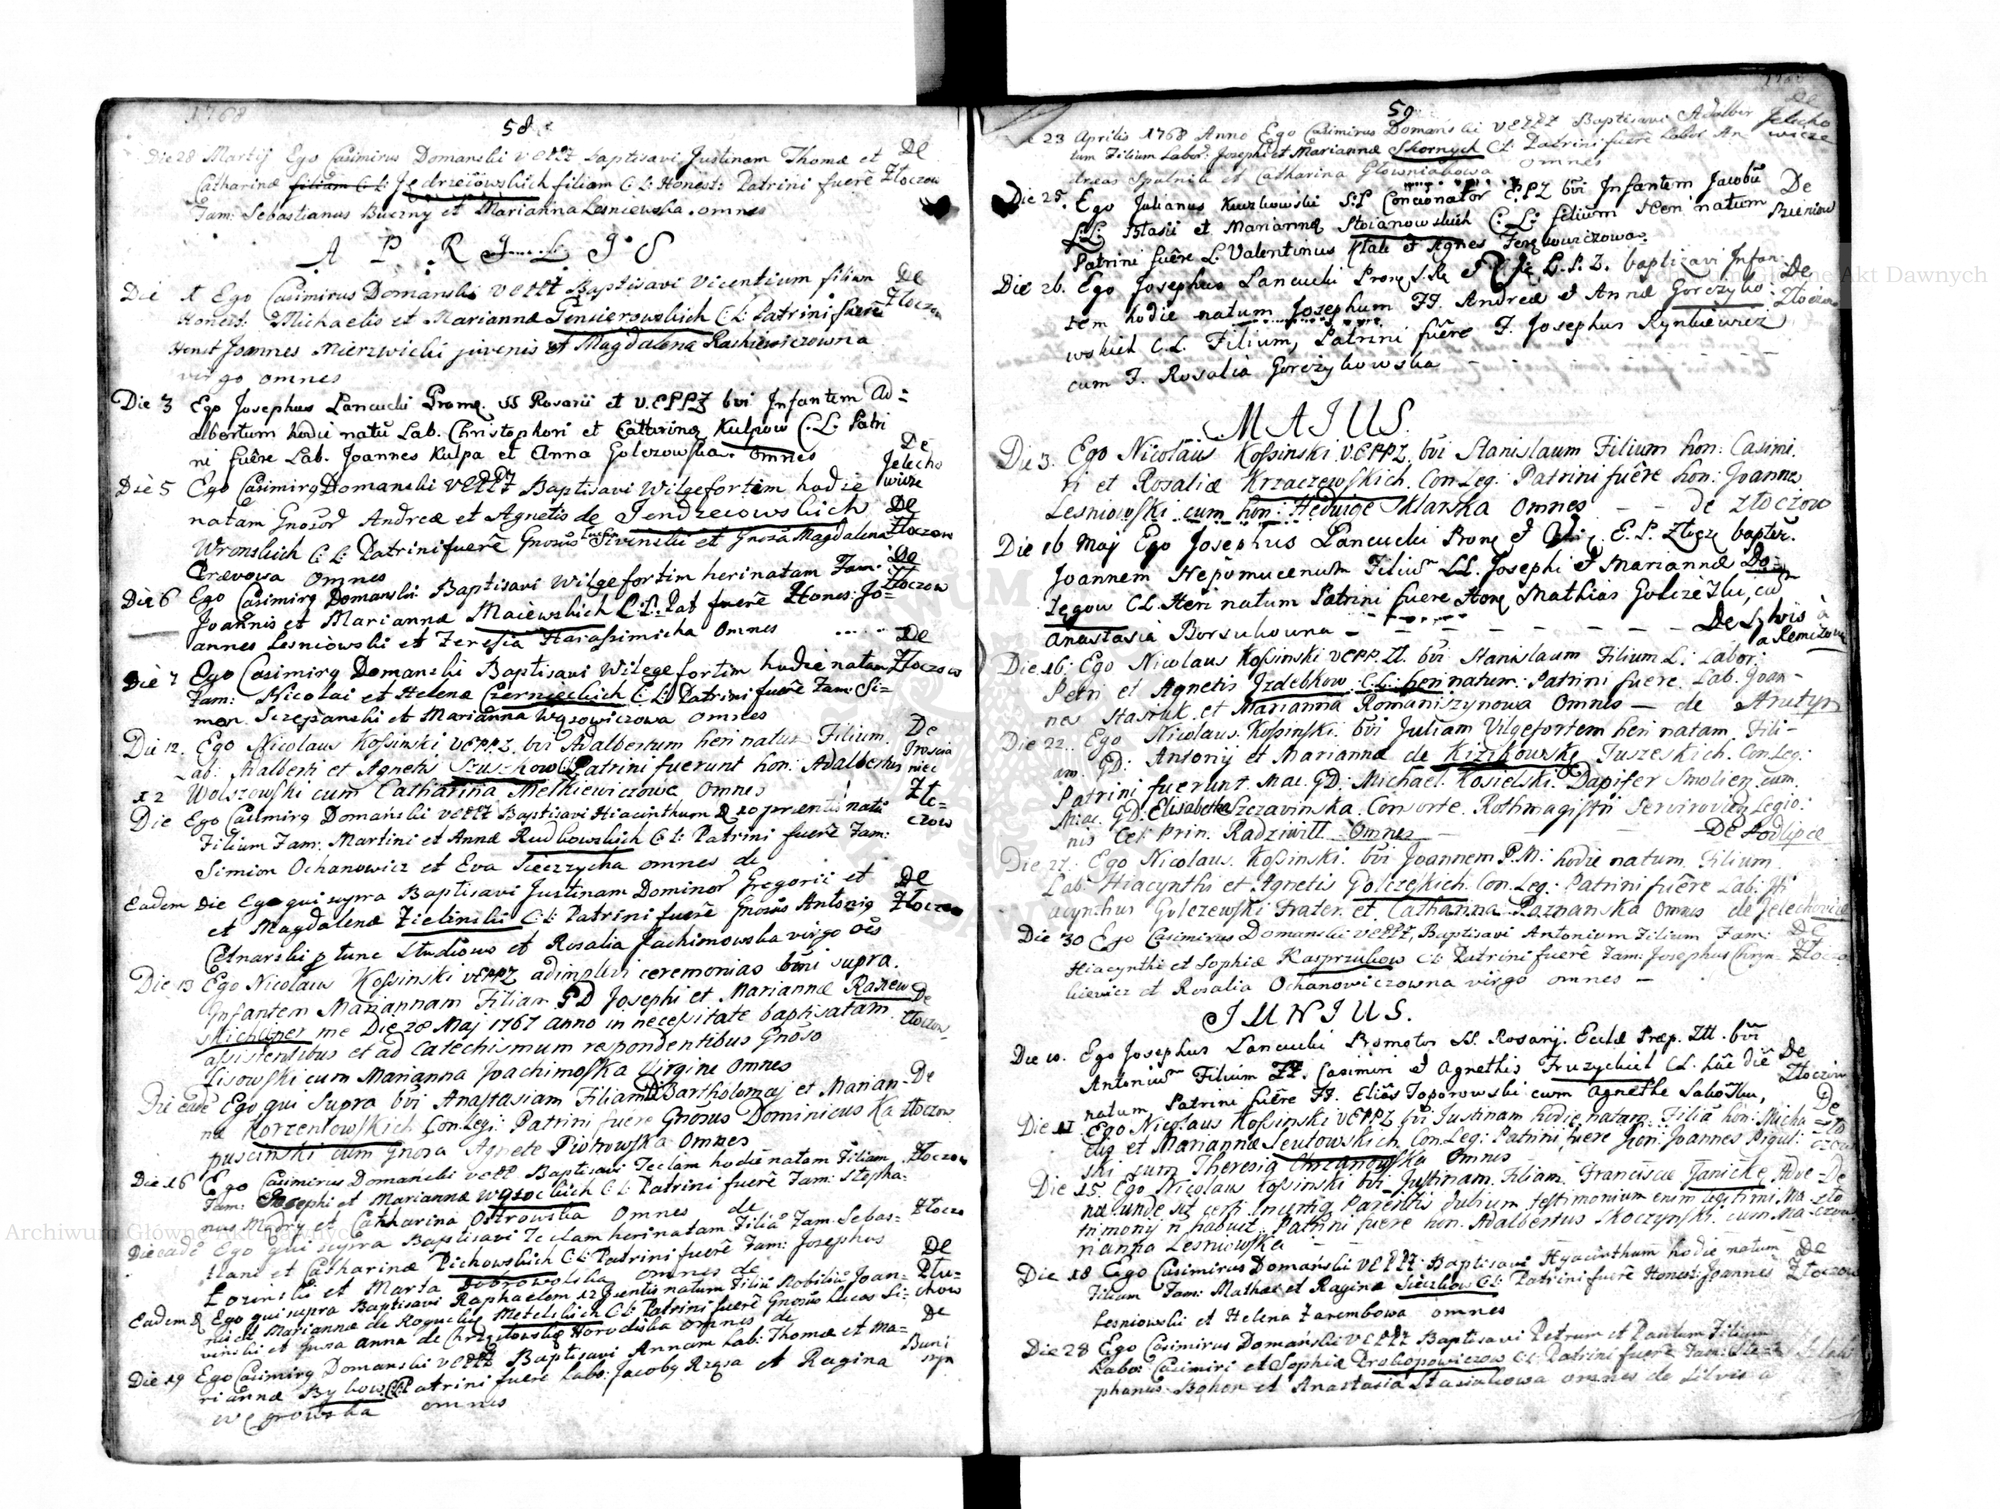 1768
58
Die 28 Martij Ego Casimirus Domanski VEPPZ Baptisavi Justinam Thomæ et De
Catharinæ filiam C L: Jędrzeiowskich filiam C L: Honest: Patrini fuere Złoczow
Fam: Sebastianus Buczny et Marianna Lesniewska omnes
APRILIS
Die 1 Ego Casimirus Domanski VEPPZ Baptisavi Vicentium filium De
Honest: Michaelis et Mariannæ Gensierowskich C L: Patrini fuere Złoczow
Honest Joannes Mierzwicki juvenis et Magdalena Raskiewiczowna
virgo omnes
Die 3 Ego Josephus Lancucki Promq. SS Rosarii et V.EPPZ bvi Infantem Ad=
albertum hodie natũ Lab. Christophori et Catharinæ Kulpow C. L. Patri
ni fuêre Lab. Joannes Kulpa et Anna Golczowska. Omnes De Jelecho
Die 5 Ego Casimirq Domanski VEPPZ Baptisavi Wilgefortim hodie wicze
natam Gnosor Andreæ et Agnetis de Jendrzeiowskich De
Wronskich C L: Patrini fuere Gnosus Siwinski et Gnosa Magdalena Złoczow
Prævowa omnes De
Die 6 Ego Casimirq Domanski Baptisavi Wilgefortim heri natam Fam: Złoczow
Joannis et Mariannæ Maiewskich C: L: Pat fuerê Hones: Jo=
annes Lesniowski et Teresia Harassimicka Omnes De
Die 7 Ego Casimirq Domanski Baptisavi Wilegefortim hodie natam Złoczow
Fam: Nicolai et Helenæ Czernieckich C L: Patrini fuerê Fam: Si=
mon Sczepanski et Marianna Wąsowiczowa omnes
Die 12. Ego Nicolaus Kossinski VEPPZ. bvi Adalbertum heri natum Filium De
Lab: Adalberti et Agnetis Patrini fuerunt hon: Adalbertus
Wolszowski cum Catharina Melkiewiczowa Omnes
12
Die Ego Casimirq Domański VEPPZ Baptisavi Hiacinthum nati Złoczow
Filium Fam: Martini et Annæ Rudkowskich C L: Patrini fuerê Fam:
Simion Ochanowicz et Eva Sieczzycha omnes de
Eadem Die Ego qui supra Baptisavi Justinam Dominor Gregorii et De
et Magdalenæ Zielinski C L: Patrini fuerê Gnosus Antonig Złoczow
Cetnarski p tunc studiosus et Rosalia Jachimowska virgo oês
Die 13 Ego Nicolaus Kossinski VEPPZ adimplevi ceremonias bvni supra.
Infantem Mariannam Filiam PD Josephi et Mariannæ Raniew De
skich per me Die 28 Maj 1767 anno in necessitate baptisatam. Złoczow
assistentibus et ad Catechismum respondentibus Gnoso
Lisowski cum Marianna Joachimoska Virgine Omnes
Die eadê Ego qui supra bvi Anastasiam Filiam Bartholomaj et Marian- De
næ Korzeniowskich Con. Legi: Patrini fuêre Gnosus Dominicus Ka Złoczow
puscinski cum Gnosa Agnete Piotrowska Omnes
Die 16 Ego Casimirus Domański VEPP Baptisavi Teclam hodie natam Filiam Złoczow
Fam: Josephi et Mariannæ Wąsockich C L: Patrini fuerê Fam: Stepha=
nus Mądry et Catharina Ostrowska omnes de
Die eadê Ego qui supra Baptisavi Teclam heri natam Filiã Fam Sebas= Złoczo
tiani et Catharinæ Pichowskich C L: Patrini fuerê Fam: Josephus
Lozinski et Marta Dobrowolska omnes de De
Eadem D Ego qui supra Baptisavi Raphaelem 12 præsentis natum Filiũ Nobiliũ Joan= Płu=
nis et Mariannæ de Roguckis Metelskich C L: Patrini fuerê Gnosus Lucas Si= chow
winski et Gnosa Anna de Chrząstowskie Horodiska omnes de De
Die 19 Ego Casimirq Domanski VEPPZ Baptisavi Annam Lab: Thomæ et Ma= Buni
riannæ Bykow C L: Patrini fuerê Labo: Jacobq Rząsa et Regina
Węgrowska omnes
59
23 Aprilis 1768 Anno Ego Casimirus Domański VEPPZ Baptisavi Adalber De Jelecho
tum Filium Labor: Josephi et Mariannæ Skornych C L: Patrini fuêre Labor An wicze
dreas Spulnik et Catharina Głowniakowa omnes
Die 25. Ego Julianus Kurzkowski S: P Concionator EPPZ bvi Infantem Jacobũ De
L.L: Blasii et Mariannæ Stoianowskich C. L. filium Heri natum Szeniow
Patrini fuêre L. Valentinus Ptak et Agnes Ferensowiczowa.
Die 26. Ego Josephus Lancucki Promq S.R. et Vi. E. P. Z. baptizavi Infan- De
tem hodie natum Josephum FF. Andreæ et Annæ Gorczyko= Złoczow
wskich C. L. Filium, Patrini fuêre F. Josephus Rynkiewicz
cum F. Rosalia Gorczykowska
MAJUS.
Die 3. Ego Nicolaus Kossinski. VEPPZ. bvi Stanislaum Filium hon: Casimi.
ri et Rosaliæ Krzaczewskich. Con. Leg: Patrini fuêre hon: Joannes
Lesniowski cum hon: Hedvige Sklarska Omnes - - de Złoczow
Die 16 Maj Ego Josephus Lancucki Promq et E. P. Złocz baptiz.
Joannem Nepomucenum Filium LL. Josephi et Mariannæ Do=
tęgow C L. Heri natum Patrini fuere Honq Mathias Golczewski, cũ
Anastasia Borsukowna - - - - - - De Sylvis à
a Remizow
Die 16. Ego Nicolaus Kossinski VEPP. Zl. bvi Stanislaum Filium L: Labor:
Petri et Agnetis Jzdebkow C L: heri natum: Patrini fuere. Lab. Joan-
nes Stasiuk. et Marianna Romaniszynowa Omnes - de Strutyn
Die 22. Ego Nicolaus. Kossinski. bvi Juliam Vilgefortem heri natam. Fili-
am. GD: Antonij et Mariannæ de Kizikowskie Tuszeskich. Con. Leg:
Patrini fuerunt. Mac. GD: Michael. Kosielski: Dapifer Smolien. cum.
Mac. GD: Elisabetha Szczavinska. Consorte. Rothmagistri Servirovity Legio:
nis Cels: Prin. Radziwill Omnes - - - De Podlipce
Die 27: Ego Nicolaus. Kossinski. bvi Joannem P. M: hodie natum. Filium
Lab: Hiacynthi et Agnetis Golczeskich. Con. Leg: Patrini fuêre Lab: Hi
acynthus Golczewski Frater. et Catharina Poznanska Omnes de Jelechowicze
Die 30 Ego Casimirus Domanski VEPPZ, Baptisavi Antonium Filium Fam: De
Hiacynthi et Sophiæ Kasprzukow C L: Patrini fuerê Fam: Josephus Chryn= Złoczo
kiewicz et Rosalia Ochanowiczowna virgo omnes -
JUNIUS.
Die 10. Ego Josephus Lancucki Promotor SS. Rosarij. Eclæ Præp. Złł. bvi
Antonium Filium FF. Casimiri et Agnethis Fruzyckich C L. hac die De Złoczow
natum Patrini fuêre FF. Elias Toporowski cum Agnethe Sakoska,
Die 11. Ego Nicolaus Kossinski VEPPZ bvi Justinam hodie natam. Filiã hon: Micha De
elis et Mariannæ Seutowskich. Con. Leg: Patrini fuere hon: Joannes Pigul=
ski. cum Theresia Chrzanowska Omnes
Die 15. Ego Nicolaus Kossinski bvi Justinam. Filiam. Franciscæ Janickę Adve= De
næ unde sit certi. Incertiq Parentis dubium testimonium enim legitimi Ma= Zło
trimonij n habuit. Patrini fuere hon. Adalbertus Skoczynski. cum. Ma= czow
rianna Lesniowska - -
Die 18 Ego Casimirus Domański VEPPZ Baptisavi Hyacinthum hodie natum De
Filium Fam: Mathæ et Reginæ Sieczkow C L: Patrini fuerê Honest: Joannes Złoczow
Lesniowski et Helena Zarembowa omnes
Die 28 Ego Casimirus Domański VEPPZ Baptisavi Petrum et Paulum Filium
Labo: Casimiri et Sophiæ Prokopowiczow C L: Patrini fuerê Fam: Ste=
phanus Bohon et Anastasia Stasiukowa omnes de Silvis a
Archiwum Główne Akt Dawnych
Archiwum Główne Akt Dawnych